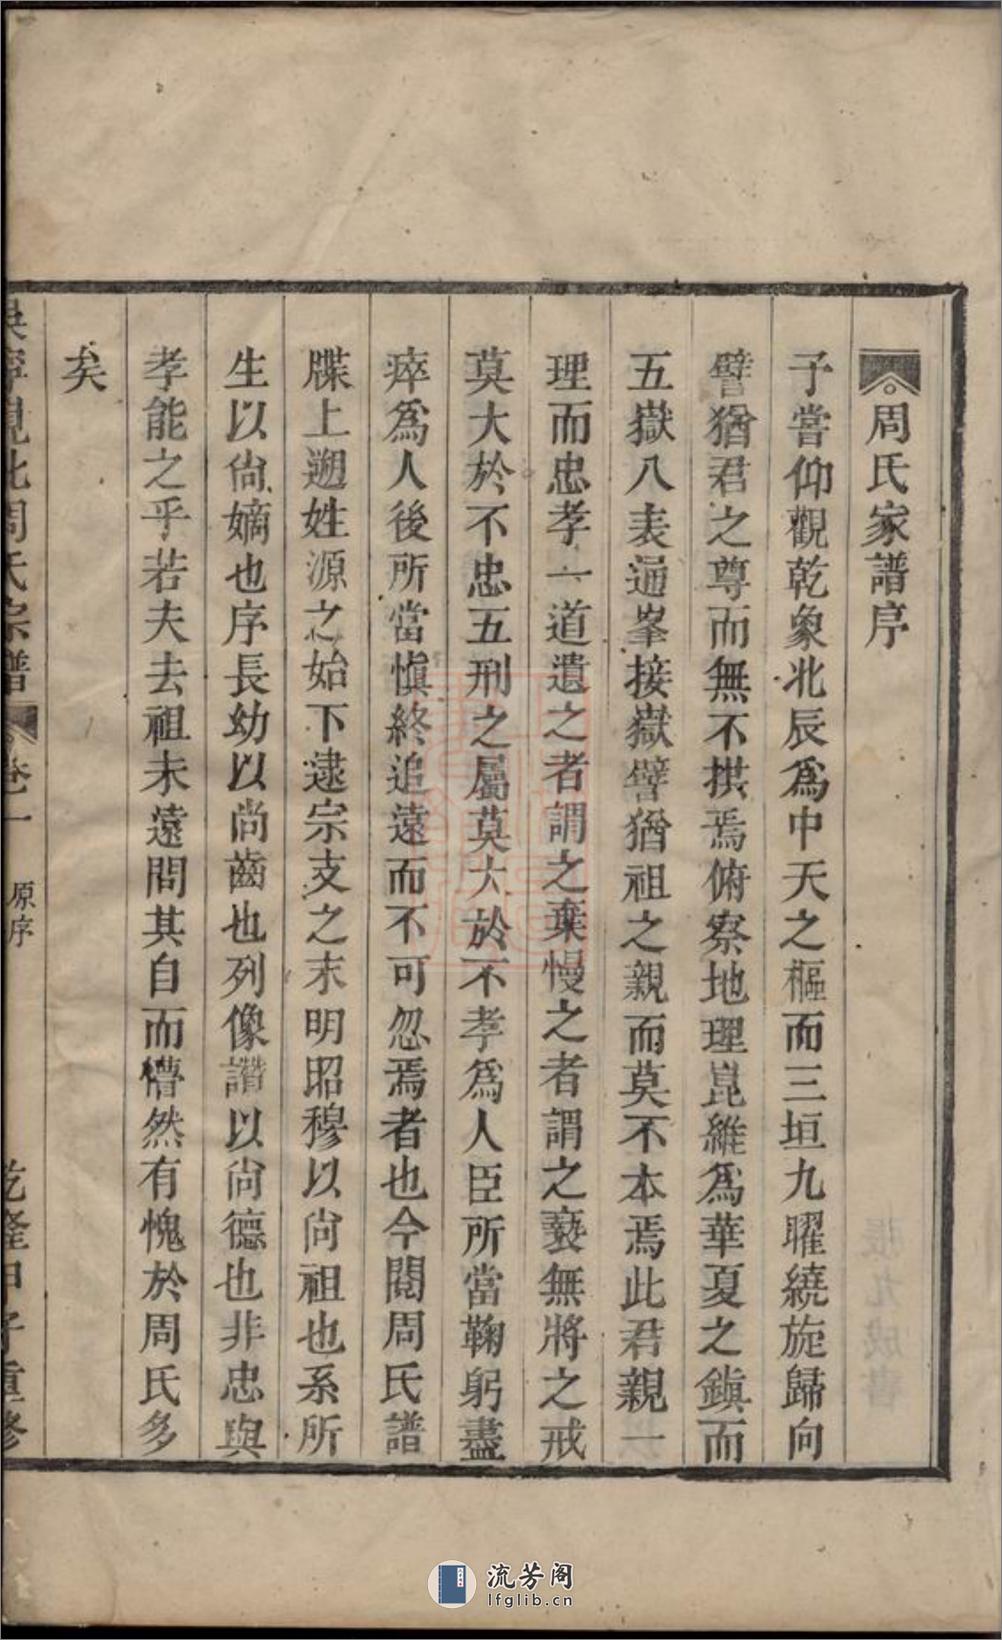 周氏家譜序
予嘗仰觀乾象北辰爲中天之樞而三垣九曜繞旋歸向
譬猶君之尊而無不拱焉俯察地理崑維爲華夏之鎮而
五嶽八表通峯接嶽譬猶祖之親而莫不本焉此君親一
理而忠孝一道遺之者謂之棄慢之者謂之褻無將之戒
莫大於不忠五刑之屬莫大於不孝爲人臣所當鞠躬盡
瘁爲人後所當愼終追遠而不可忽焉者也今閱周氏譜
牒上遡姓源之始下逮宗支之末明昭穆以尙祖也系所
生以尙嫡也序長幼以尚齒也列像讚以尙德也非忠與
孝能之乎若夫去祖未遠問其自而懵然有愧於周氏多
矣
周氏宗譜 卷一 原序 乾隆甲子重修
流芳阁
lfglib.cn